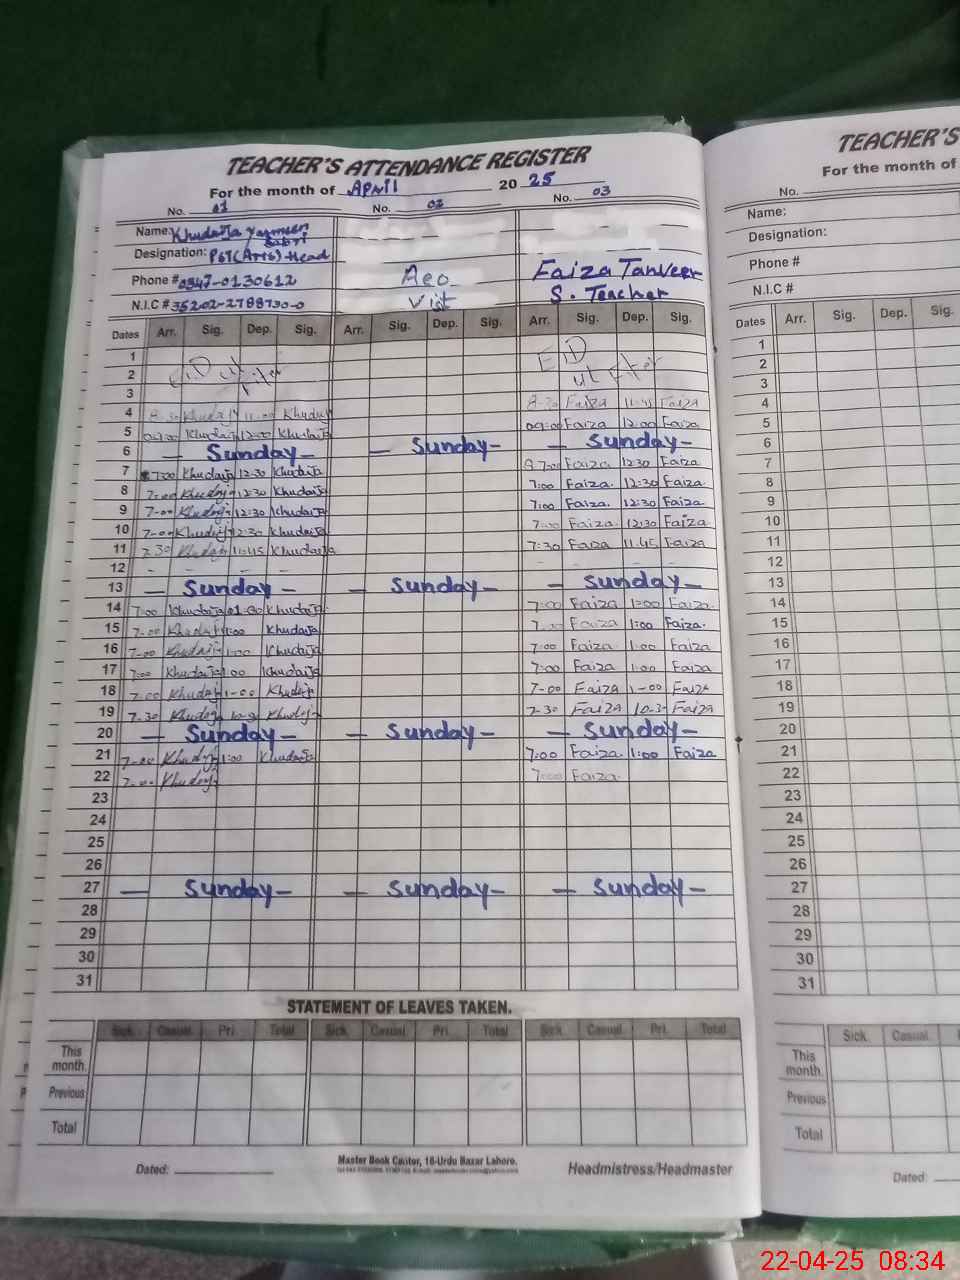 TEACHER'S ATTENDANCE REGISTER
For the month of April 2025
No. 01 No. 02 No. 03
Name: Khudaija Yasmeen
Sabri
Designation: PST (Arts) Head
Phone # 0347-0130612 Aeo Faiza Tanveer
N.I.C # 35202-2788730-0 Visit S. Teacher
Dates Arr. Sig. Dep. Sig. Arr. Sig. Dep. Sig. Arr. Sig. Dep. Sig.
1 EiD
2 EiD ul Fiter ul Fter
3
4 8-30 Khudaij 11-00 Khudaij 8-30 Faiza 11-45 Faiza
5 09:00 Khudaija 12:00 Khudaija 09:00 Faiza 12:00 Faiza
6 — Sunday — — Sunday — — Sunday —
7 7:00 Khudaija 12:30 Khudaija 7:00 Faiza 12:30 Faiza
8 7:00 Khudaij 12:30 Khudaija 7:00 Faiza. 12:30 Faiza
9 7-00 Khudaij 12:30 Khudaija 7:00 Faiza. 12:30 Faiza
10 7-00 Khudaij 12:30 Khudaija 7:00 Faiza. 12:30 Faiza.
11 7.30 Khudaij 11:45 Khudaija 7:30 Faiza 11.45 Faiza
12 - - - - - - - -
13 — Sunday — — Sunday — — Sunday —
14 7:00 Khudaija 01:00 Khudaija 7:00 Faiza 1:00 Faiza.
15 7-00 Khudaij 1:00 Khudaija Faiza 1:00 Faiza.
16 7-00 Khudaij 1:00 Khudaija 7:00 Faiza 1:00 Faiza
17 7:00 Khudaija 1:00 Khudaija 7:00 Faiza 1:00 Faiza
18 7.00 Khudaij 1-00 Khudaij 7-00 Faiza 1-00 Faiza
19 7.30 Khudaij Khudaij 7-30 Faiza 10.3 Faiza
20 — Sunday — — Sunday — — Sunday —
21 7-00 Khudaij 1:00 Khudaija 7:00 Faiza 1:00 Faiza
22 7-00 Khudaij 7:00 Faiza.
23
24
25
26
27 — Sunday — — Sunday — — Sunday —
28
29
30
31
STATEMENT OF LEAVES TAKEN.
Sick Casual Pri. Total Sick Casual Pri. Total Sick Casual Pri. Total
This
month.
Previous
Total
Dated: Master Book Center, 16-Urdu Bazar Lahore. Headmistress/Headmaster
TEACHER'S
For the month of
No.
Name:
Designation:
Phone #
N.I.C #
Dates Arr. Sig. Dep. Sig.
1
2
3
4
5
6
7
8
9
10
11
12
13
14
15
16
17
18
19
20
21
22
23
24
25
26
27
28
29
30
31
Sick Casual
This
month.
Previous
Total
Dated:
22-04-25 08:34